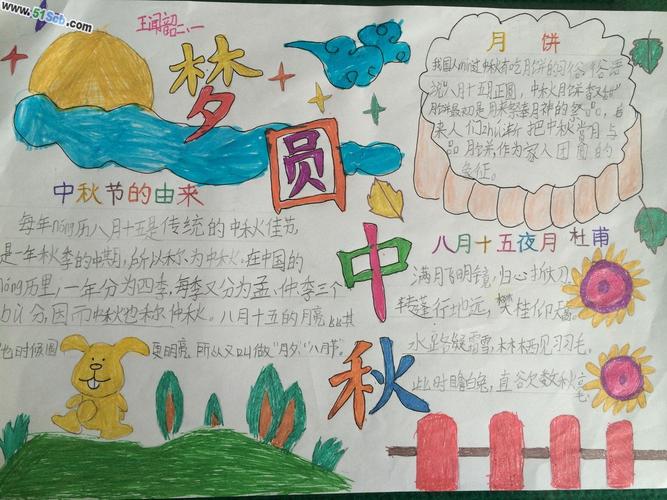 www.51Scb.com
王闻韶二、一
梦
圆
中
秋
月饼
我国人min过中秋有吃月饼的习俗俗语
说"八月十五月正圆,中秋月饼
月饼最初是用来祭奉月神的祭品,后
来人们功jiàn把中秋赏月与
品月饼,作为家人团圆的
象征。
中秋节的由来
每年nóng历八月十五是传统的中秋佳节,
是一年秋季的中期,所以称为中秋。在中国的
nóng历里,一年分为四季,每季又分为孟、仲、季三个
bù分,因而中秋也称仲秋。八月十五的月亮比其
他时候圆 更明亮,所以又叫做"月夕""八月节"。
八月十五夜月 杜甫
满月飞明镜,归心折大刀
转蓬行地远,攀桂仰天高。
水路疑霜雪,林栖见羽毛,
此时瞻白兔,直谷欠数秋毫。